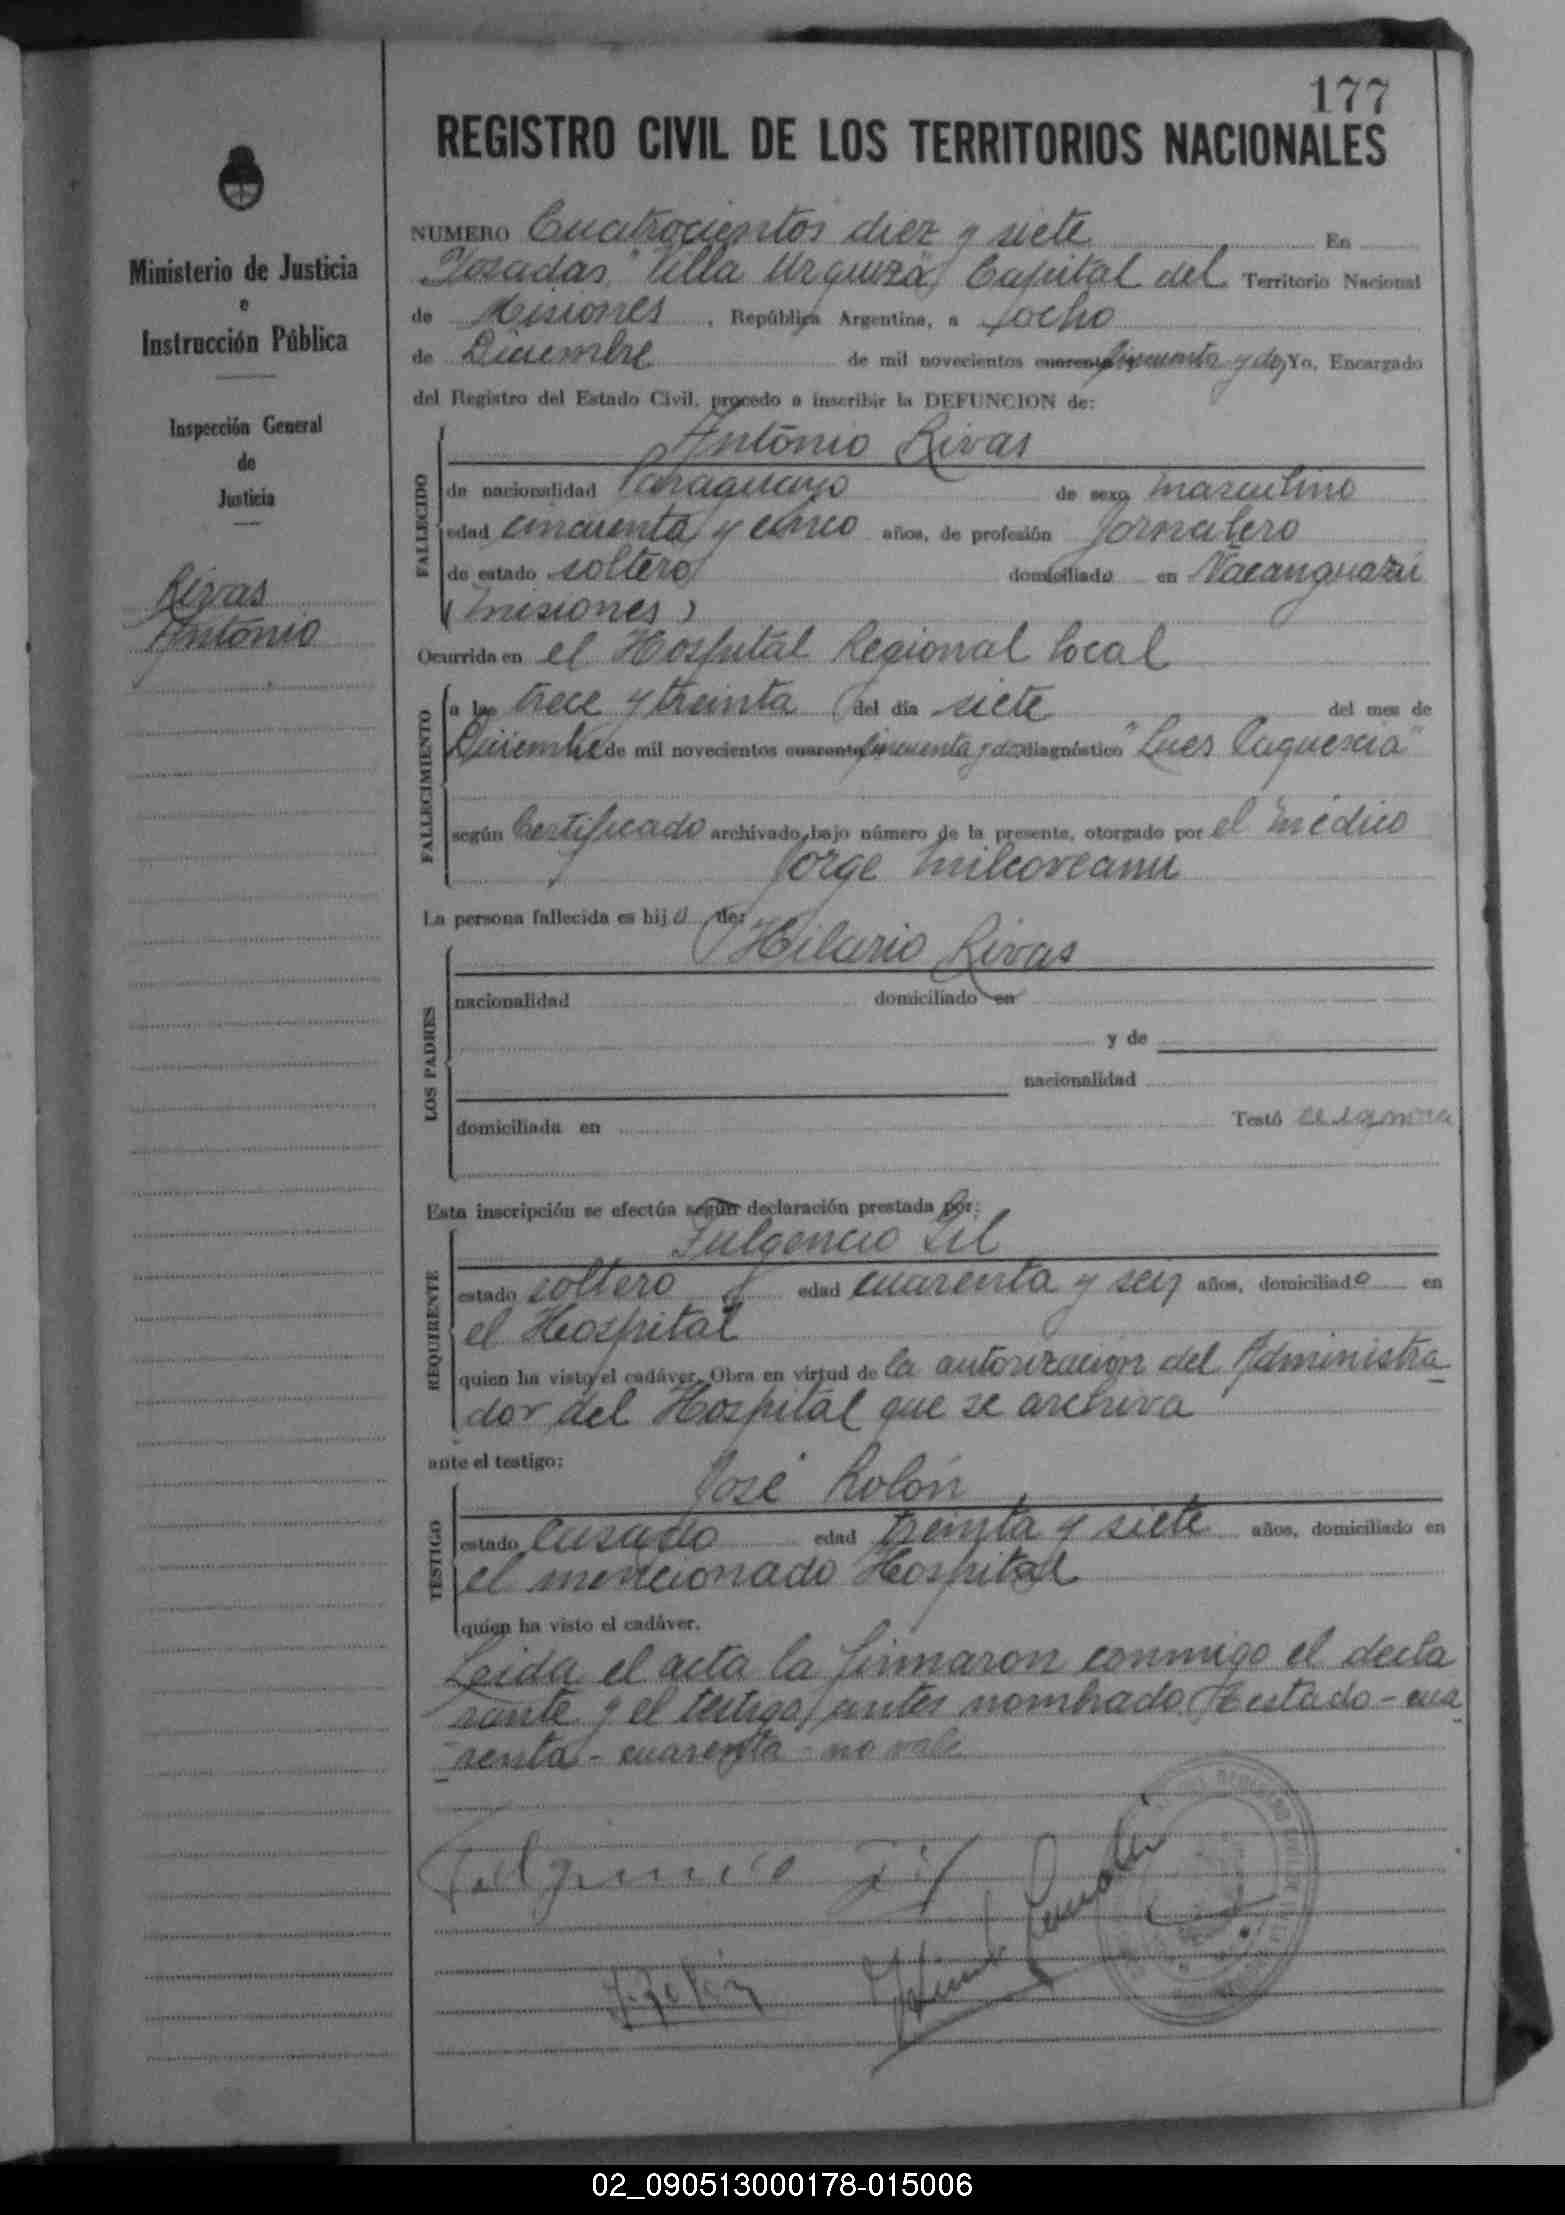 177
REGISTRO CIVIL DE LOS TERRITORIOS NACIONALES
Ministerio de Justicia
e
Instrucción Pública
Inspección General
de
Justicia
Rivas
Antonio
NUMERO Cuatrocientos diez y siete En
Posadas "Villa Urquiza" Capital del Territorio Nacional
de Misiones, República Argentina, a ocho
de Diciembre de mil novecientos cuarenta cincuenta y dos Yo, Encargado
del Registro del Estado Civil, procedo a inscribir la DEFUNCION de:
FALLECIDO
Antonio Rivas
de nacionalidad Paraguayo de sexo masculino
edad cincuenta y cinco años, de profesión Jornalero
de estado soltero domiciliado en Ñacanguazú
(Misiones)
Ocurrida en el Hospital Regional local
FALLECIMIENTO
a las trece y treinta del día siete del mes de
Diciembre de mil novecientos cuarenta cincuenta y dos diagnóstico "Lues Caquexia"
según Certificado archivado bajo número de la presente, otorgado por el médico
Jorge Milcoveanu
La persona fallecida es hijo de:
LOS PADRES
Hilario Rivas
nacionalidad domiciliado en
y de
nacionalidad
domiciliada en Testó se ignora
Esta inscripción se efectúa según declaración prestada por:
REQUIRENTE
Fulgencio Gil
estado soltero edad cuarenta y seis años, domiciliado en
el Hospital
quien ha visto el cadáver. Obra en virtud de la autorización del Administra
dor del Hospital que se archiva
ante el testigo:
TESTIGO
José Rolón
estado Casado edad treinta y siete años, domiciliado en
el mencionado Hospital
quien ha visto el cadáver.
Leida el acta la firmaron conmigo el decla
rante y el testigo antes nombrado. Testado - cua
renta - cuarenta - no vale
Fulgencio Gil
J. Rolón
02_090513000178-015006